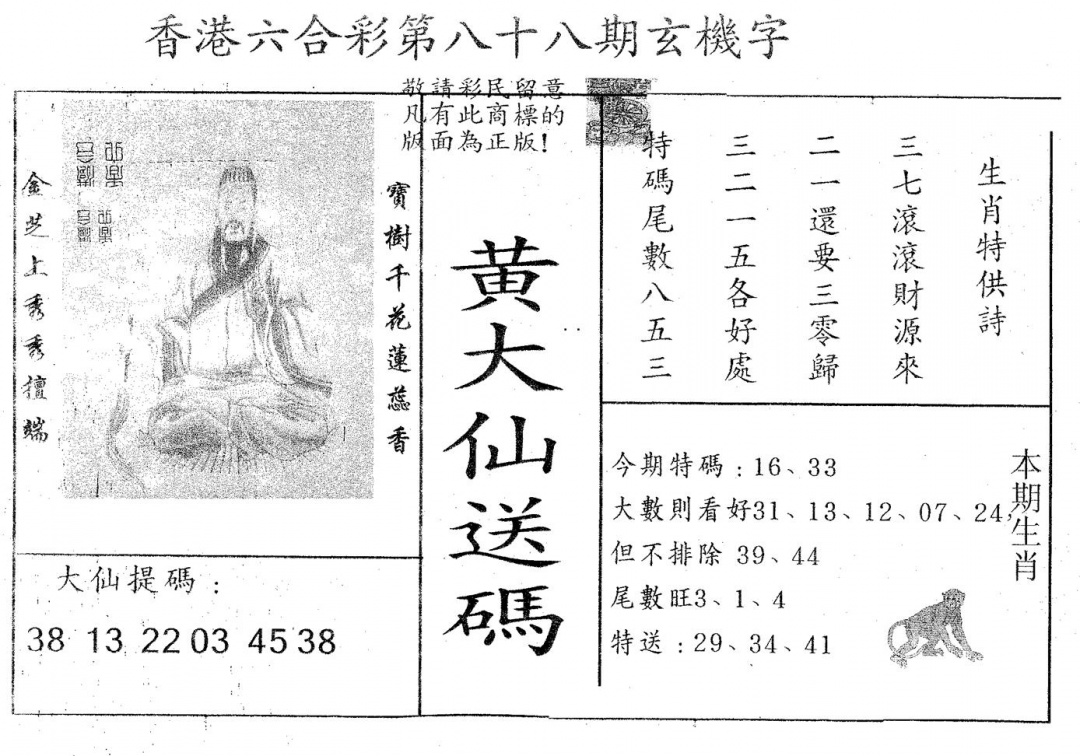 香港六合彩第八十八期玄機字
敬請彩民留意
凡有此商標的
版面為正版!
寶樹千花蓮蕊香
金芝上秀秀擅端
黃大仙送碼
生肖特供詩
三七滾滾財源來
二一還要三零歸
三二一五各好處
特碼尾數八五三
今期特碼：16、33
大數則看好31、13、12、07、24，
但不排除 39、44
尾數旺3、1、4
特送：29、34、41
本期生肖
大仙提碼：
38 13 22 03 45 38